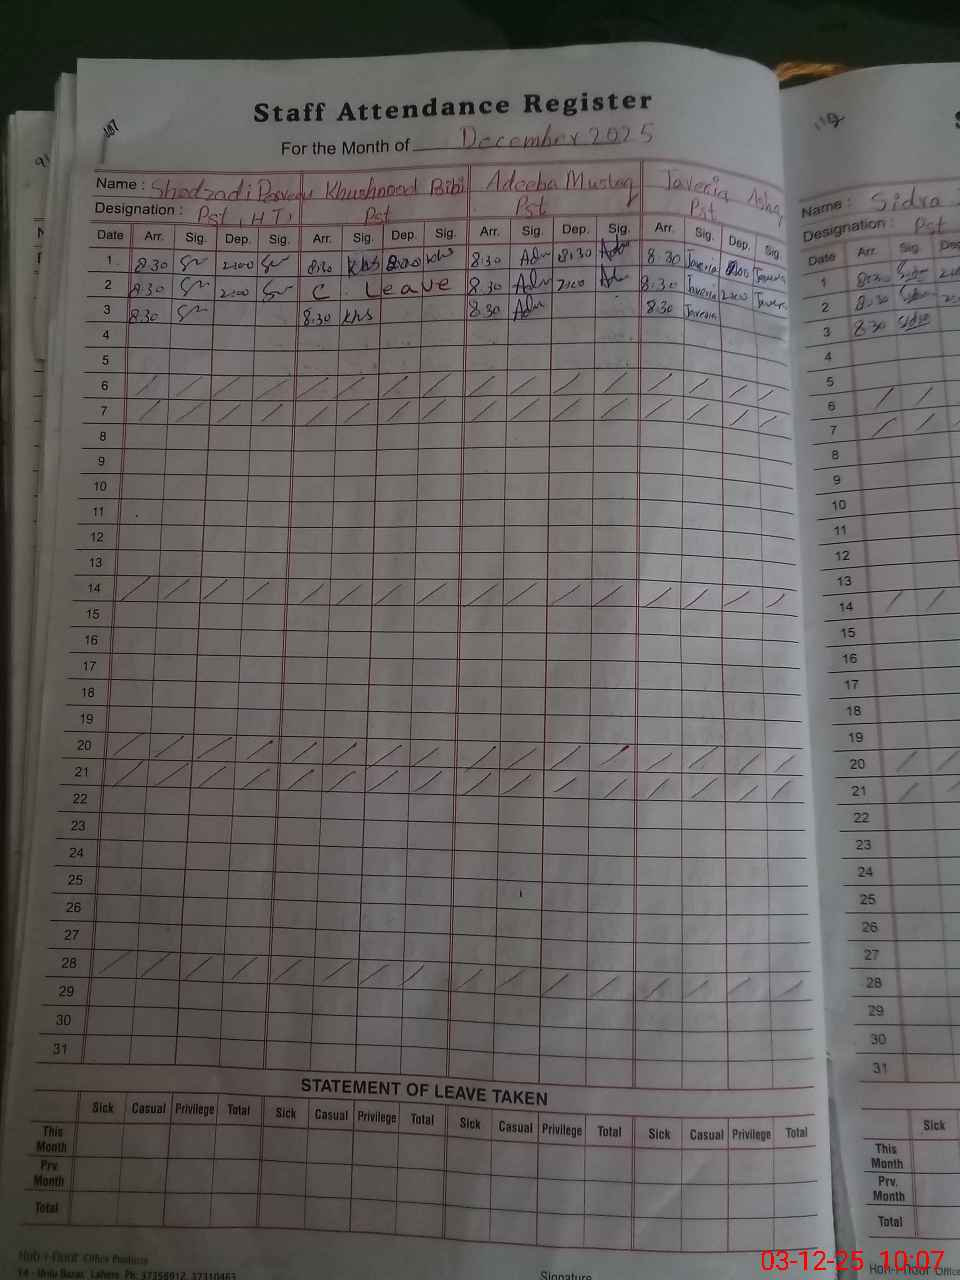 107
Staff Attendance Register
For the Month of December 2025
Name : Shadzadi Parveen Khushnood Bibi Adeeba Mustaq Javeria Ashq
Designation : Pst, HT, Pst Pst Pst
Date Arr. Sig. Dep. Sig. Arr. Sig. Dep. Sig. Arr. Sig. Dep. Sig. Arr. Sig. Dep. Sig.
1 8:30 2:00 8:30 khs 2:00 khs 8:30 Adu 8:30 Adu 8:30 Javeria 2:00 Javeria
2 8:30 2:00 C. Leave 8:30 Adu 2:00 Adu 8:30 Javeria 2:00 Javeria
3 8:30 8:30 khs 8:30 Adu 8:30 Javeria
4
5
6
7
8
9
10
11
12
13
14
15
16
17
18
19
20
21
22
23
24
25
26
27
28
29
30
31
STATEMENT OF LEAVE TAKEN
Sick Casual Privilege Total Sick Casual Privilege Total Sick Casual Privilege Total Sick Casual Privilege Total
This Month
Prv. Month
Total
Office Products
14 - Urdu Bazar, Lahore Ph: 37356912, 37310463
Signature
Name : Sidra
Designation : Pst
Date Arr. Sig. Dep
1 8:30 Sidra
2 8:30 Sidra
3 8:30 Sidra
4
5
6
7
8
9
10
11
12
13
14
15
16
17
18
19
20
21
22
23
24
25
26
27
28
29
30
31
Sick
This Month
Prv. Month
Total
03-12-25 10:07